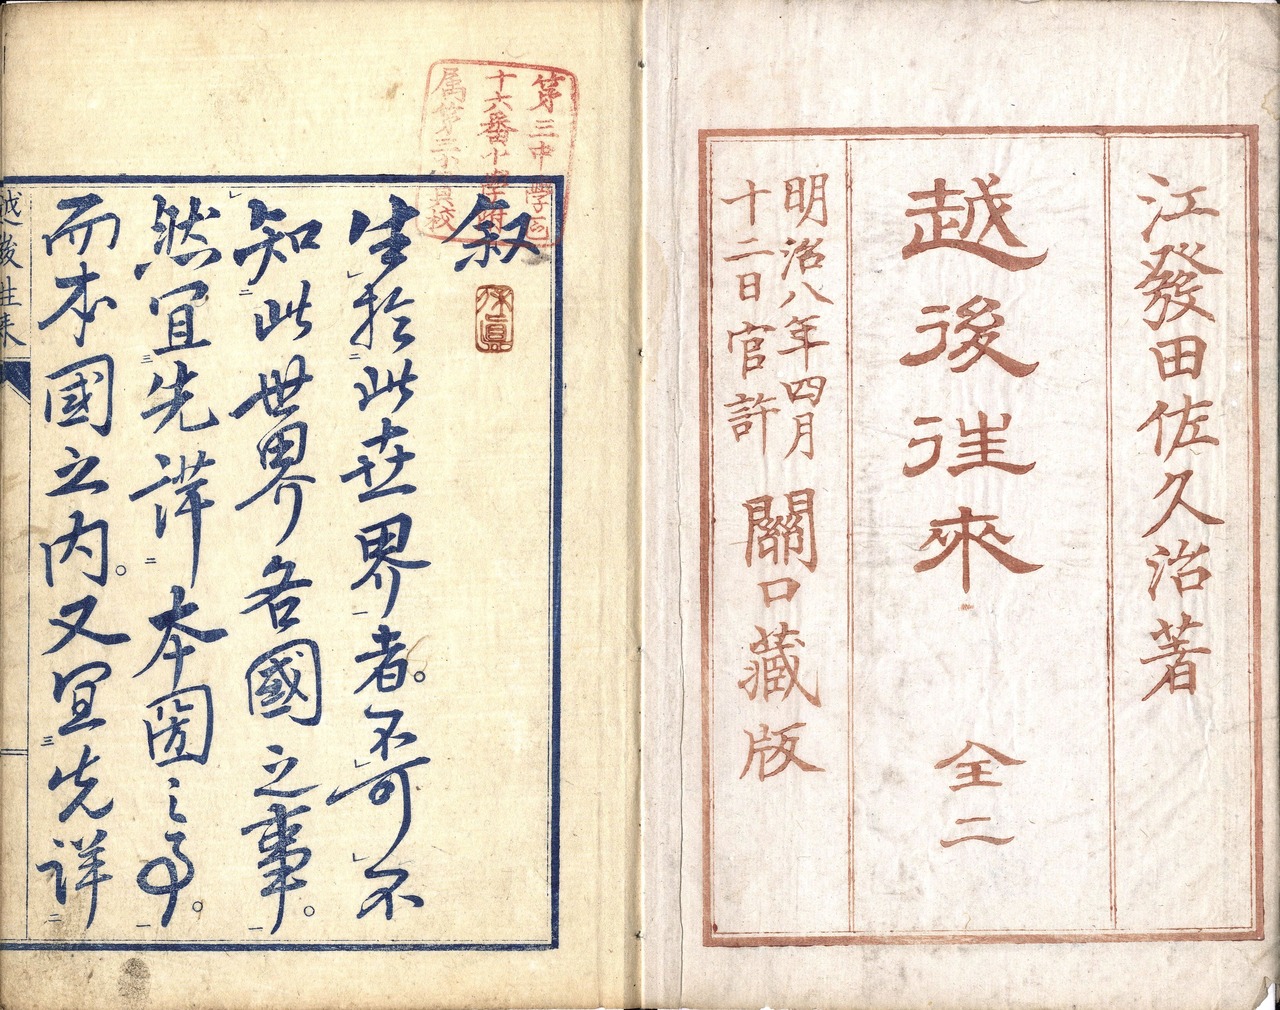 江發田佐久治著
越後徃來 全二
明治八年四月
十二日官許 關口藏版
第三中學区
十六番中學附
属第三小學校
叙
生於此世界者。不可不
知此世界各國之事。
然宜先詳本國之事。
而本國之内。又宜先詳
越後往来